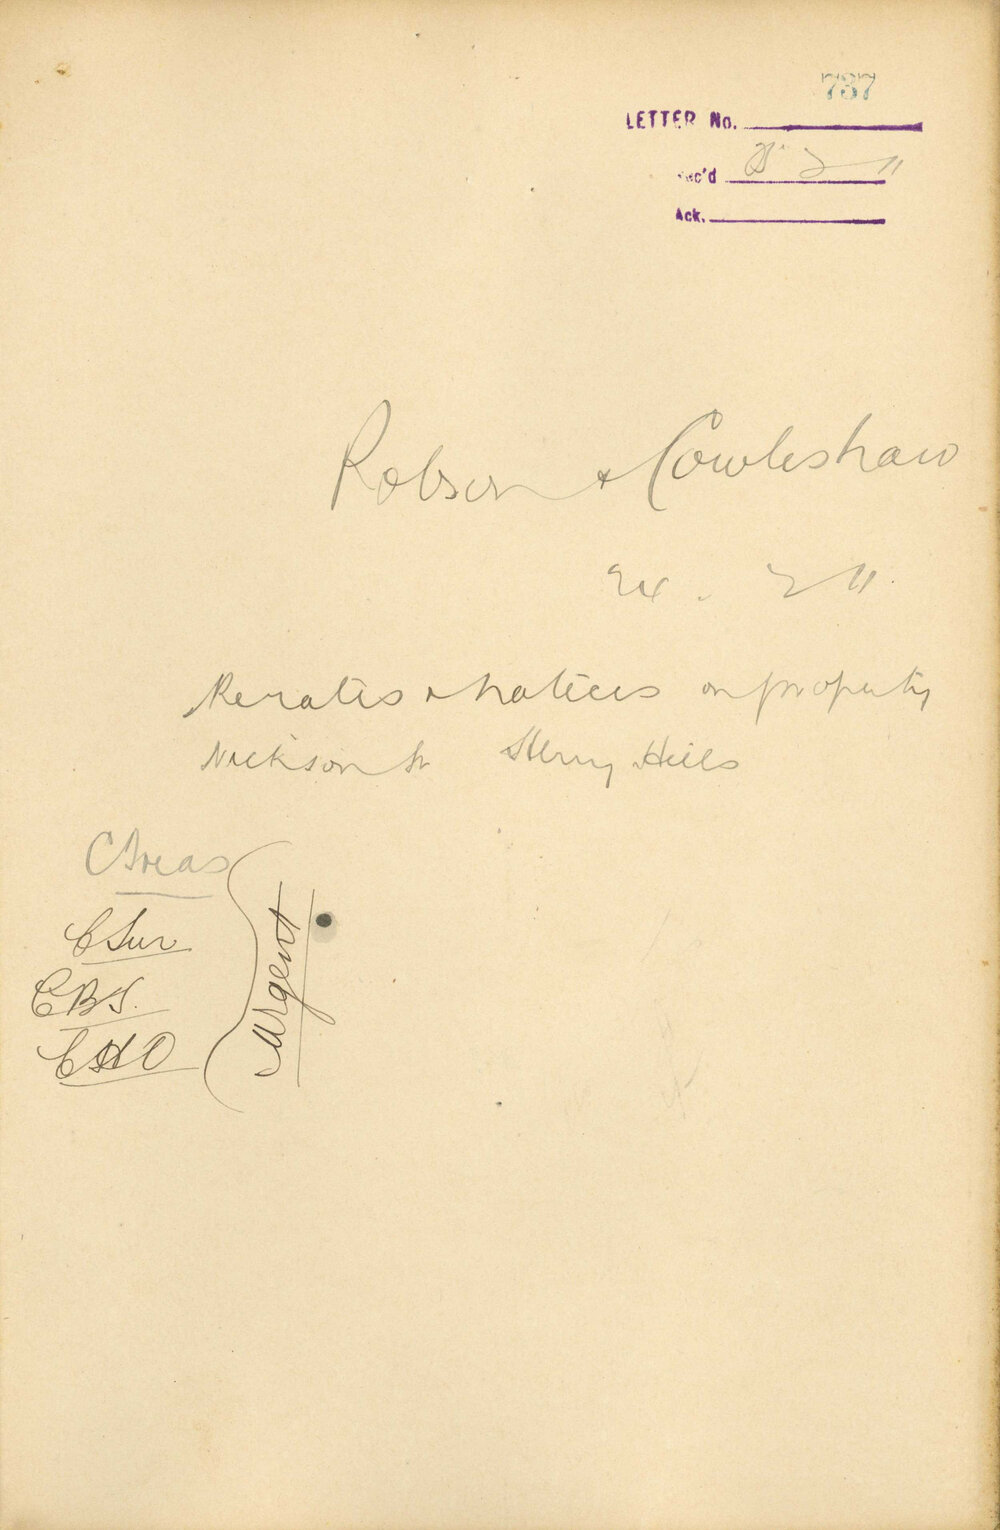 737
LETTER No.
Rec'd 2 11
Ack.
Robson & Cowleshaw
2 11
Re rates & notices on property
Nickson St Surry Hills
C Treas
C Sur
CBS.
CHO
Urgent